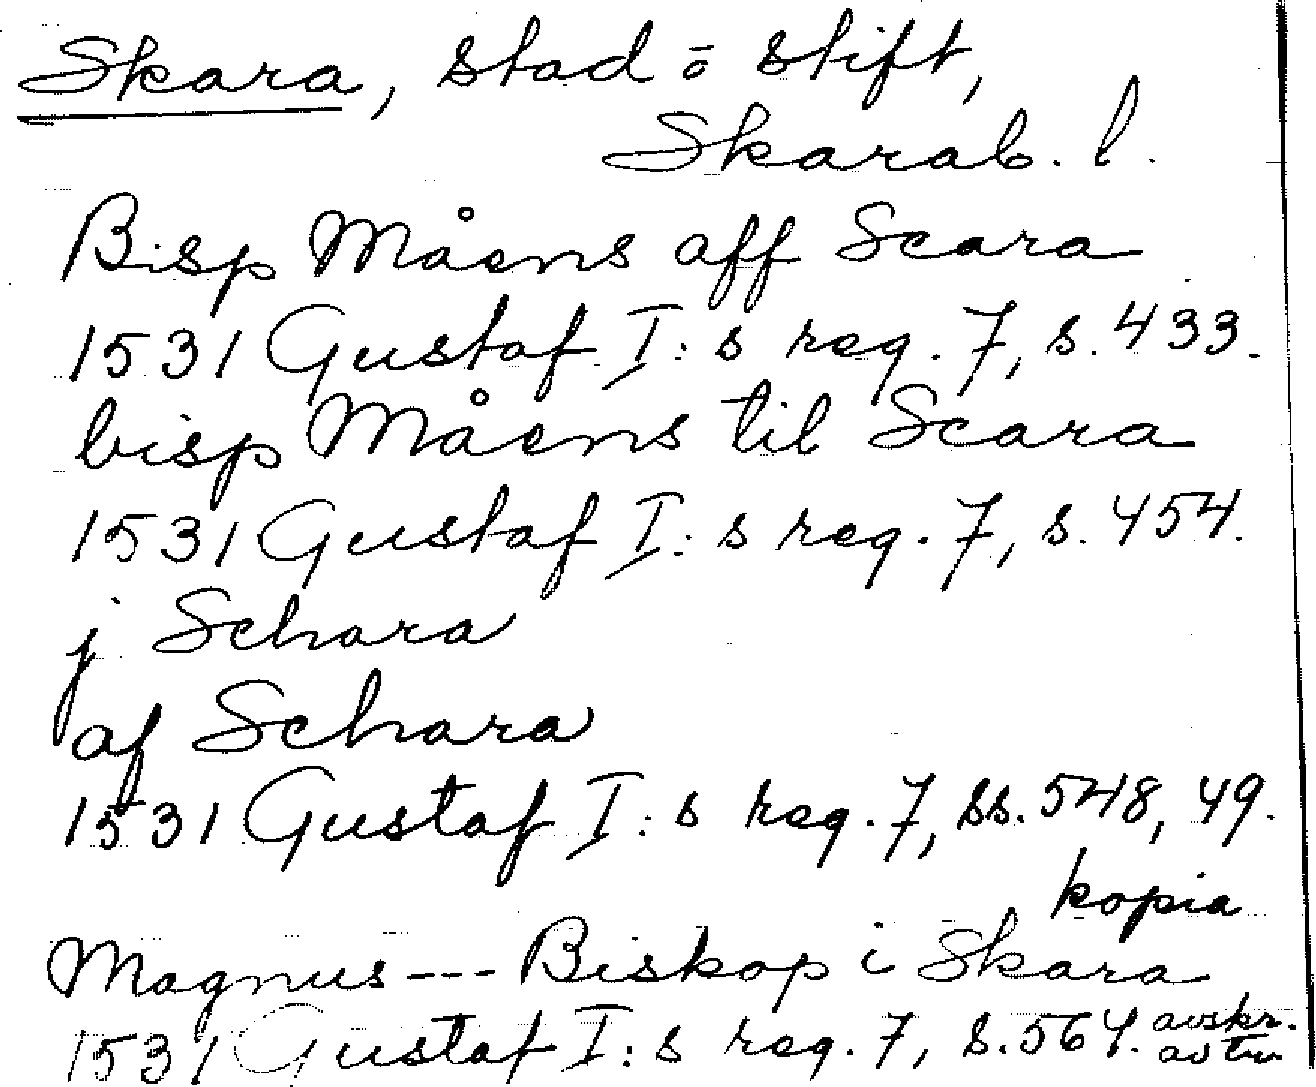 Skara, stad o stift,
Skarab. l.
Bisp Måens aff Scara
1531 Gustaf I:s reg. 7, s. 433.
bisp Måens til Scara
1531 Gustaf I:s reg. 7, s. 454.
j Schara
af Schara
1531 Gustaf I:s reg. 7, ss. 548, 49.
kopia
Magnus --- Biskop i Skara
1531 Gustaf I:s reg. 7, s. 564. avskr.
av trn